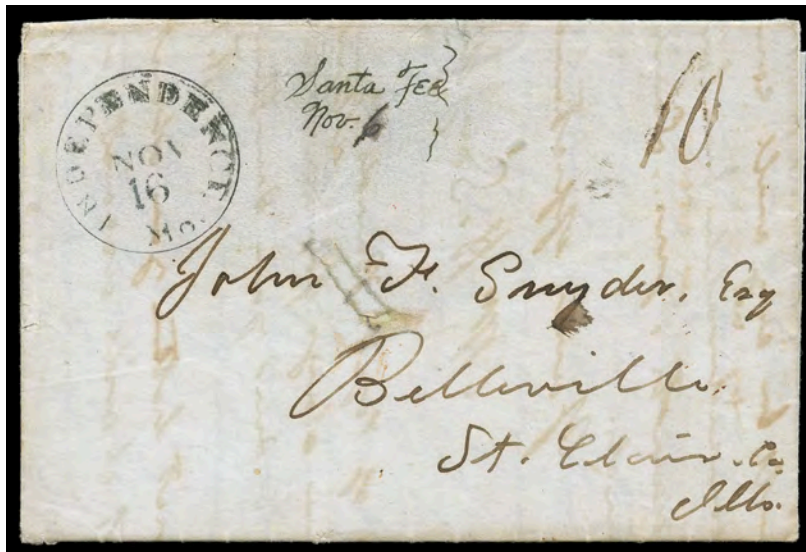 INDEPENDENCE Mo.
NOV
16
Santa Fee
Nov. 6
10
John F. Snyder, Esq
Belleville
St. Clair. Co.
Ills.